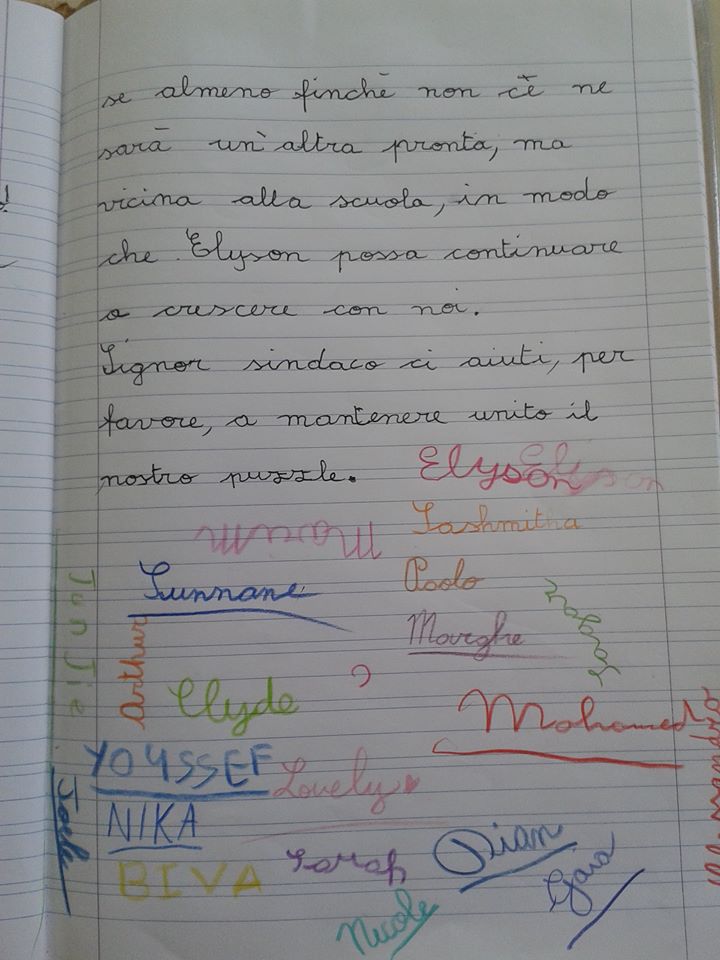 se almeno finchè non c'è ne
sarà un'altra pronta, ma
vicina alla scuola, in modo
che Elyson possa continuare
a crescere con noi.
Signor sindaco ci aiuti, per
favore, a mantenere unito il
nostro puzzle.
Elyson
Lashmitha
Sunnane
Paolo
Marghe
JunJie
Arthur
Clyde
Mohamed
YOUSSEF
Lovely
NIKA
Joele
BIVA
Sarah
Dian
Nicole